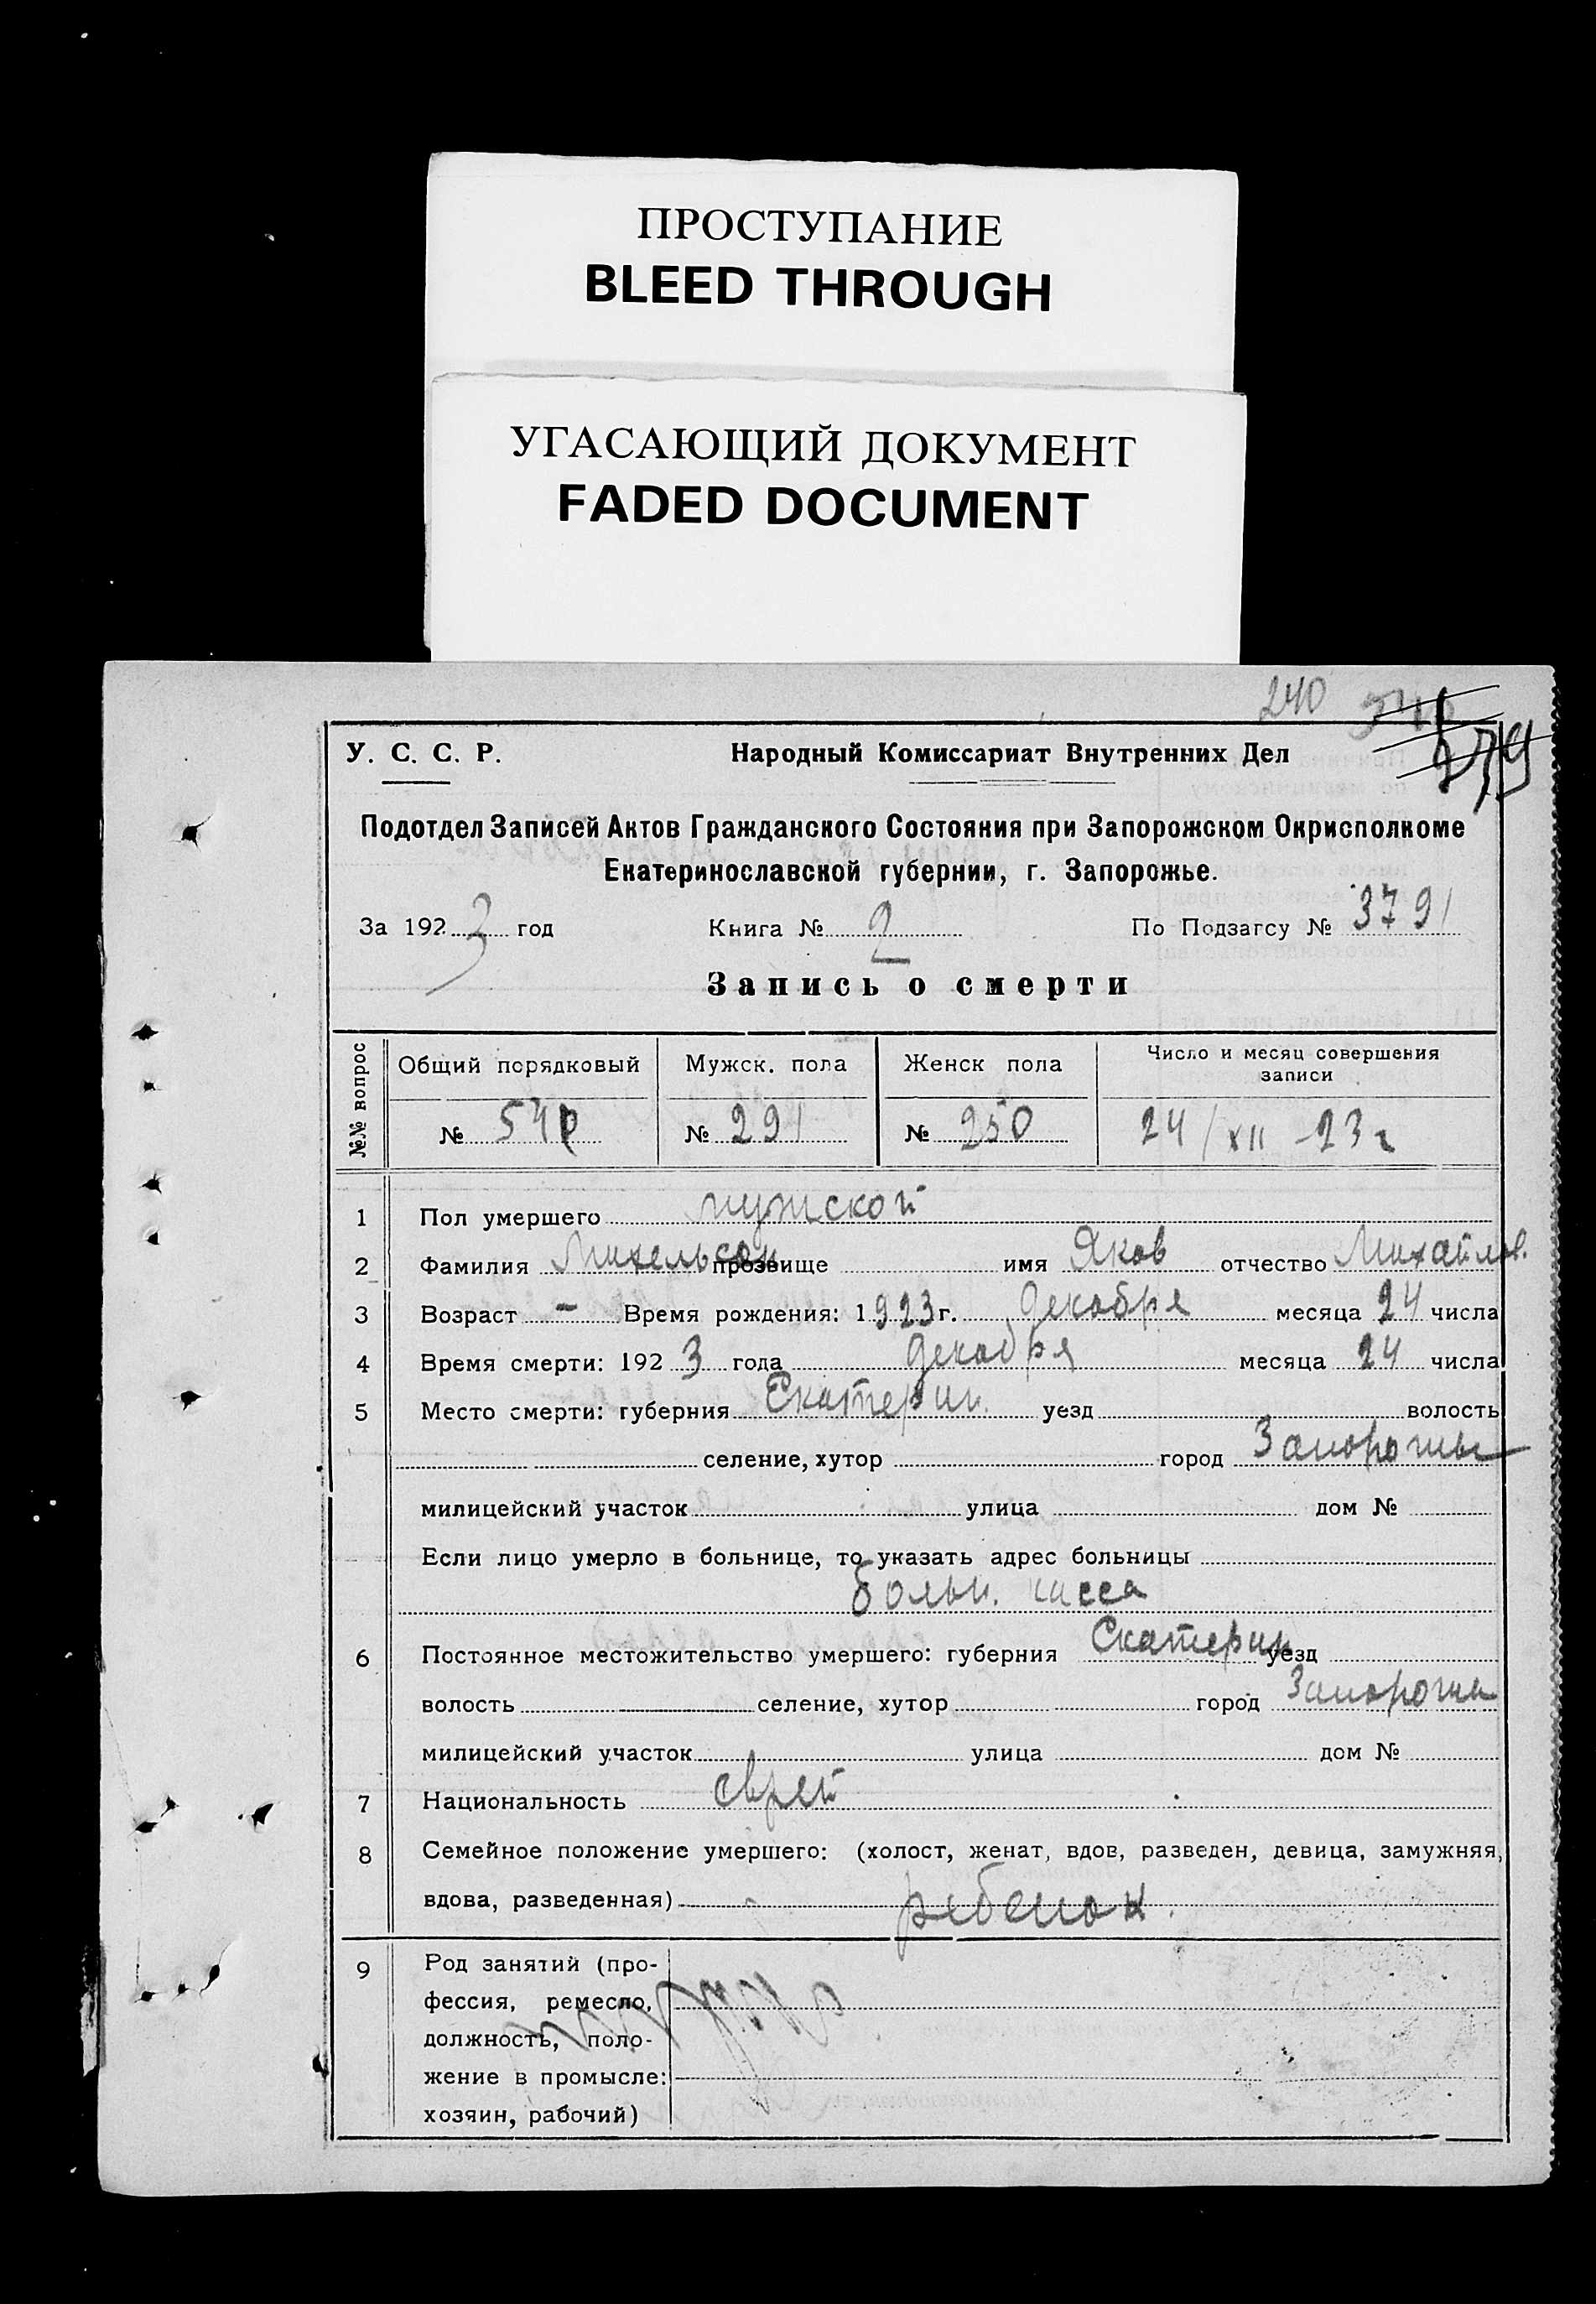 ПРОСТУПАНИЕ
BLEED THROUGH
УГАСАЮЩИЙ ДОКУМЕНТ
FADED DOCUMENT
240
У. С. С. Р. Народный Комиссариат Внутренних Дел
Подотдел Записей Актов Гражданского Состояния при Запорожском Окрисполкоме
Екатеринославской губернии, г. Запорожье.
За 1923 год Книга № 2 По Подзагсу № 3791
Запись о смерти
№№ вопрос
Общий порядковый Мужск. пола Женск пола Число и месяц совершения
записи
№ № 291 № 250 24/XII-23 г
1 Пол умершего мужской
2 Фамилия Михельсон прозвище имя Яков отчество Михайлов.
3 Возраст - Время рождения: 1923 г. Декабря месяца 24 числа
4 Время смерти: 1923 года декабря месяца 24 числа
5 Место смерти: губерния Екатерин. уезд волость
селение, хутор город Запорожье
милицейский участок улица дом №
Если лицо умерло в больнице, то указать адрес больницы
больн. касса
6 Постоянное местожительство умершего: губерния Екатерин уезд
волость селение, хутор город Запорожье
милицейский участок улица дом №
7 Национальность еврей
8 Семейное положение умершего: (холост, женат, вдов, разведен, девица, замужняя,
вдова, разведенная) ребенок.
9 Род занятий (про-
фессия, ремесло,
должность, поло-
жение в промысле:
хозяин, рабочий)